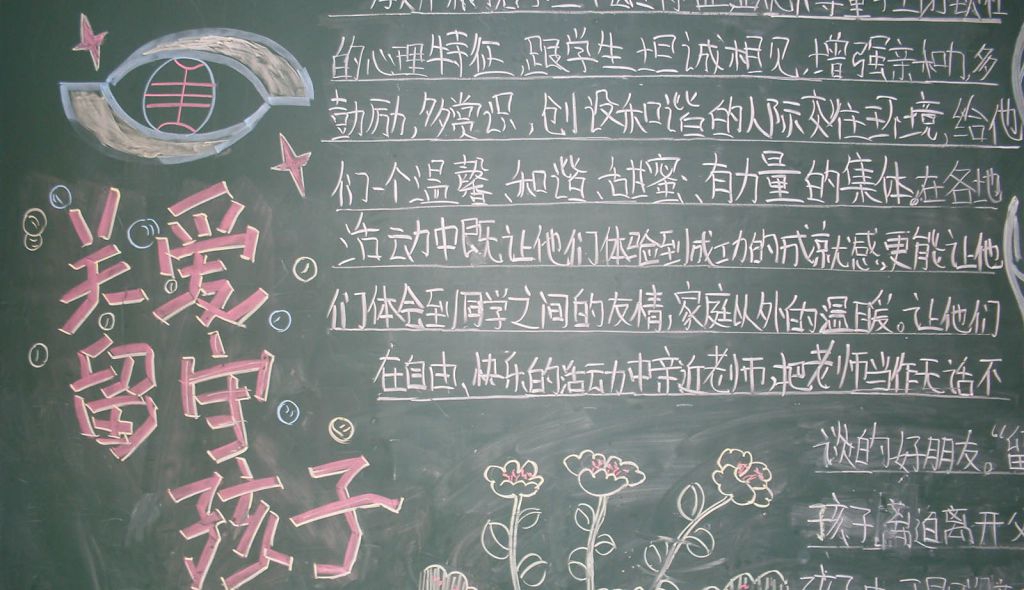 关爱
留守
孩子
的心理特征,跟学生坦诚相见,增强亲和力,多
鼓励,多赏识,创设和谐的人际交往环境,给他
们一个温馨、和谐、甜蜜、有力量的集体。在各地
活动中既让他们体验到成功的成就感,更能让他
们体会到同学之间的友情,家庭以外的温暖。让他们
在自由、快乐的活动中亲近老师,把老师当作无话不
谈的好朋友。“留
孩子离迫离开父
孩子